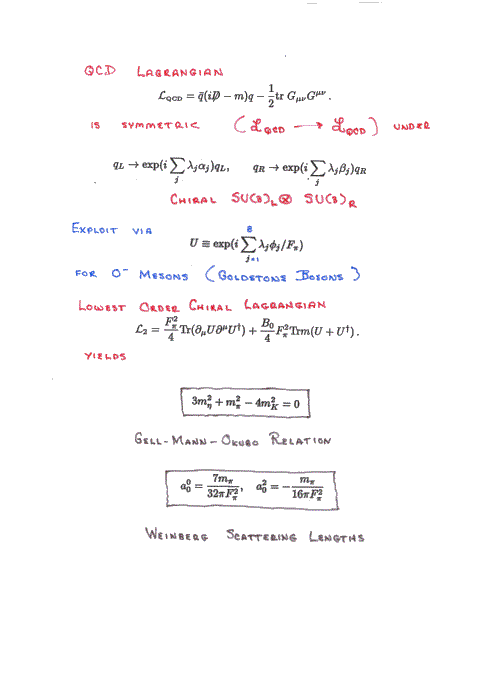 QCD LAGRANGIAN
ℒ_QCD = q̄(iD̸ − m)q − 1/2 tr G_μν G^μν .
IS SYMMETRIC (ℒ_QCD → ℒ_QCD) UNDER
q_L → exp(i ∑_j λ_j α_j)q_L, q_R → exp(i ∑_j λ_j β_j)q_R
CHIRAL SU(3)_L ⊗ SU(3)_R
EXPLOIT VIA
U ≡ exp(i ∑_{j=1}^{8} λ_j ϕ_j/F_π)
FOR 0⁻ MESONS (GOLDSTONE BOSONS)
LOWEST ORDER CHIRAL LAGRANGIAN
ℒ_2 = F_π^2/4 Tr(∂_μ U ∂^μ U^†) + B_0/4 F_π^2 Tr m(U + U^†) .
YIELDS
3m_η^2 + m_π^2 − 4m_K^2 = 0
GELL-MANN-OKUBO RELATION
a_0^0 = 7m_π/32πF_π^2, a_0^2 = − m_π/16πF_π^2
WEINBERG SCATTERING LENGTHS